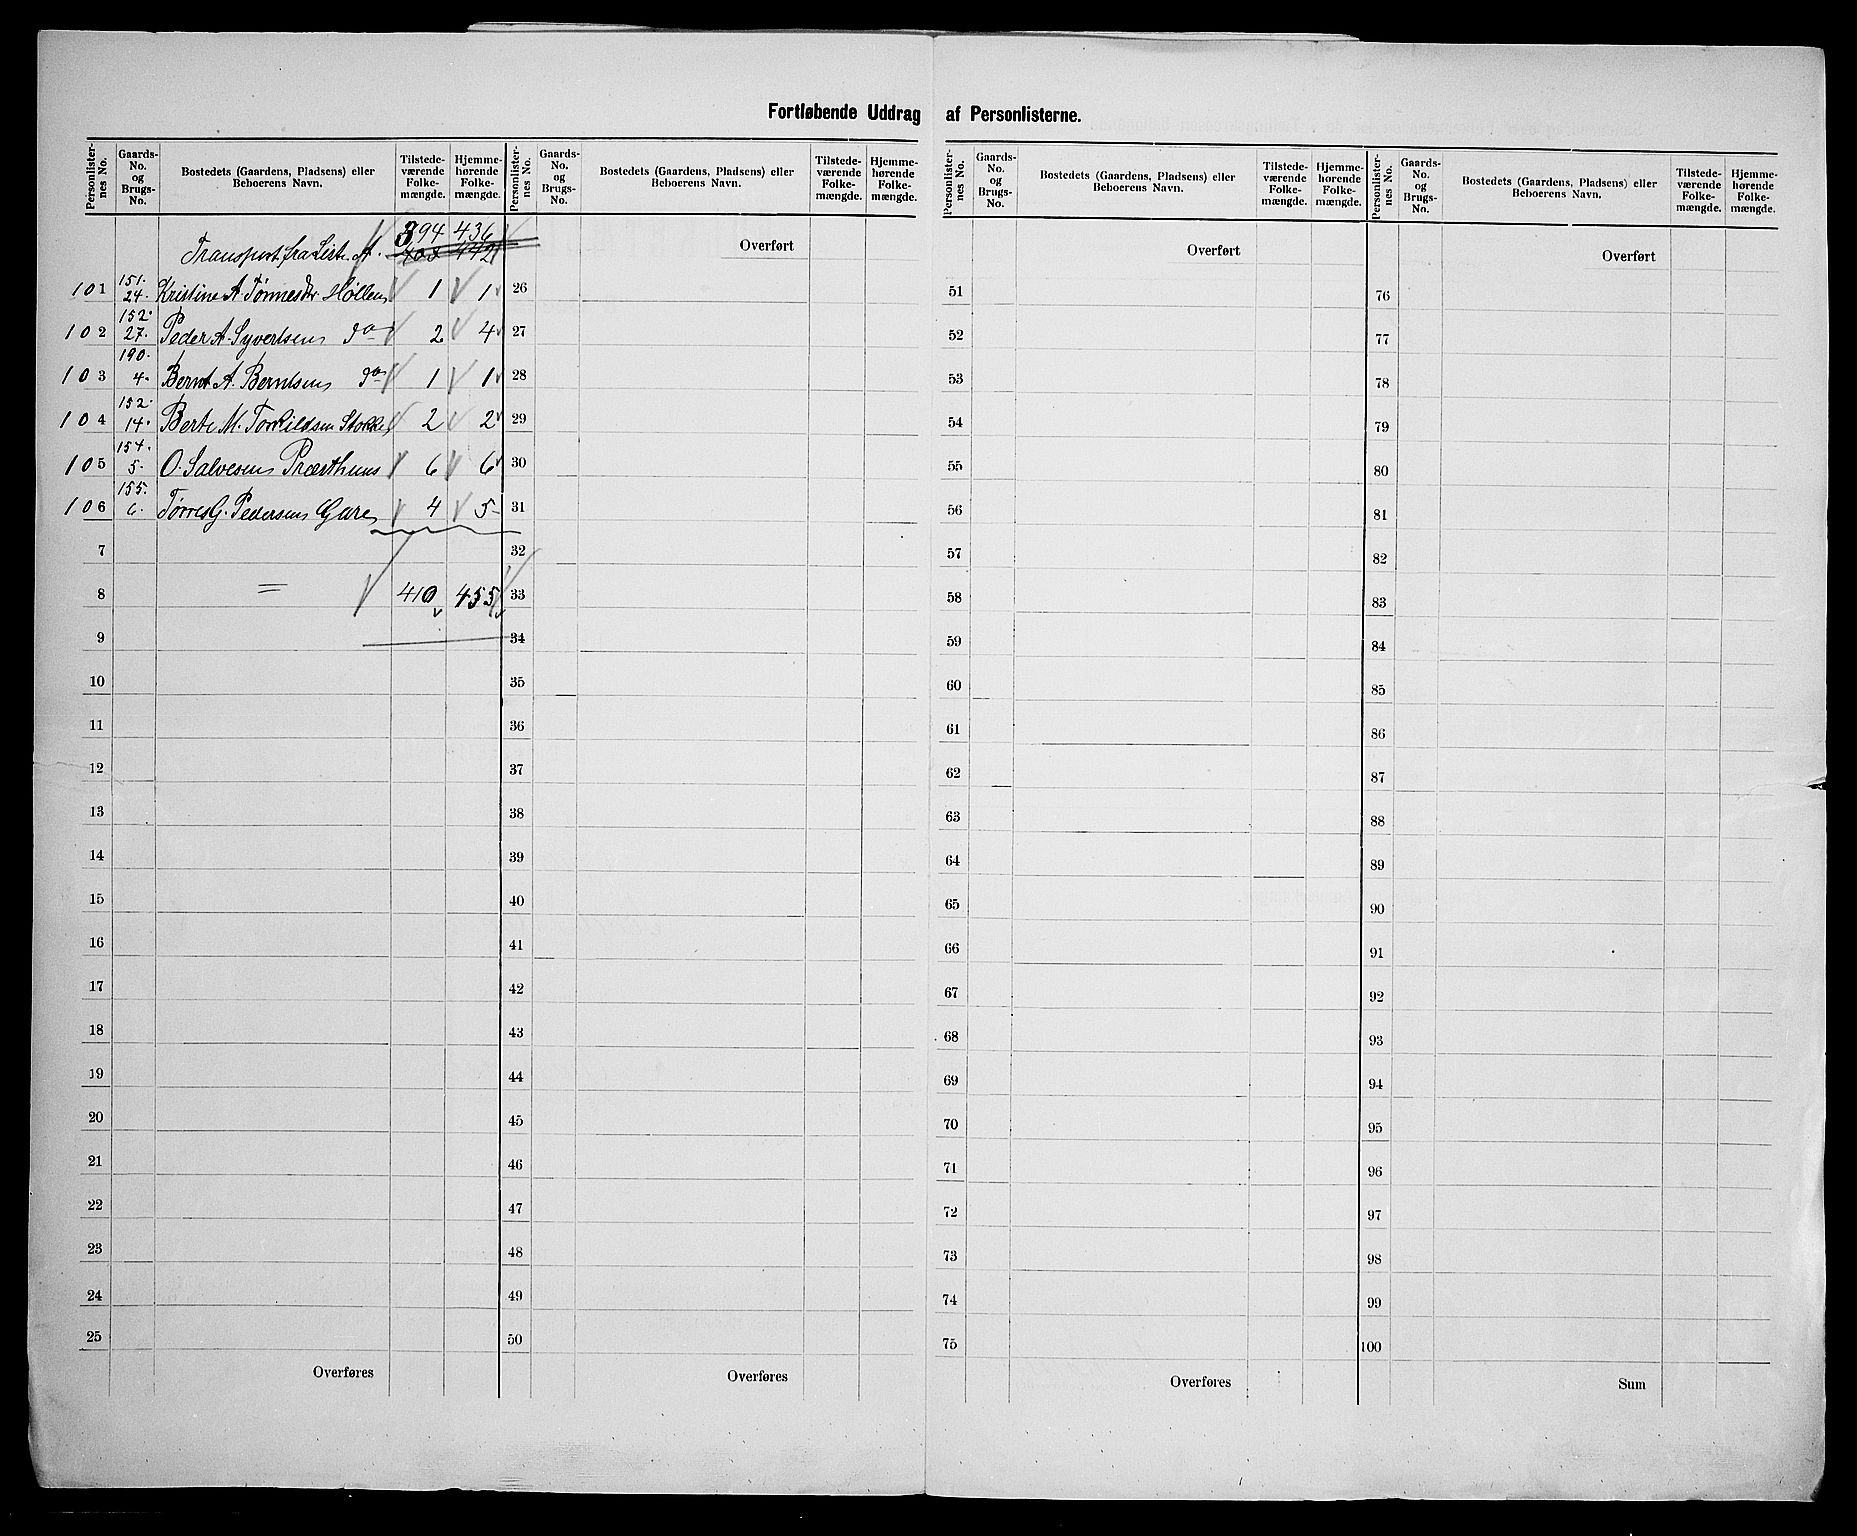 Fortløbende Uddrag af Personlisterne.
Personlisternes No. | Gaards-No. og Brugs-No. | Bostedets (Gaardens, Pladsens) eller Beboerens Navn. | Tilstedeværende Folkemængde. | Hjemmehørende Folkemængde. | Personlisternes No. | Gaards-No. og Brugs-No. | Bostedets (Gaardens, Pladsens) eller Beboerens Navn. | Tilstedeværende Folkemængde. | Hjemmehørende Folkemængde. | Personlisternes No. | Gaards-No. og Brugs-No. | Bostedets (Gaardens, Pladsens) eller Beboerens Navn. | Tilstedeværende Folkemængde. | Hjemmehørende Folkemængde. | Personlisternes No. | Gaards-No. og Brugs-No. | Bostedets (Gaardens, Pladsens) eller Beboerens Navn. | Tilstedeværende Folkemængde. | Hjemmehørende Folkemængde.
394 436
Transport fra List. A. 403 442 Overført Overført Overført
101 151. 24. Kristine A. Tønnesdr Høllen 1 1 26 51 76
102 152. 27. Peder A. Syvertsen do 2 4 27 52 77
103 190. 4. Bernt A. Berntsen do 1 1 28 53 78
104 152. 14. Berte M. Torkildsen Stokke 2 2 29 54 79
105 154. 5. O. Salvesen Præsthus 6 6 30 55 80
106 155. 6. Tørres G. Pedersen Gare 4 5 31 56 81
7 32 57 82
8 = 410 455 33 58 83
9 34 59 84
10 35 60 85
11 36 61 86
12 37 62 87
13 38 63 88
14 39 64 89
15 40 65 90
16 41 66 91
17 42 67 92
18 43 68 93
19 44 69 94
20 45 70 95
21 46 71 96
22 47 72 97
23 48 73 98
24 49 74 99
25 50 75 100
Overføres Overføres Overføres Sum